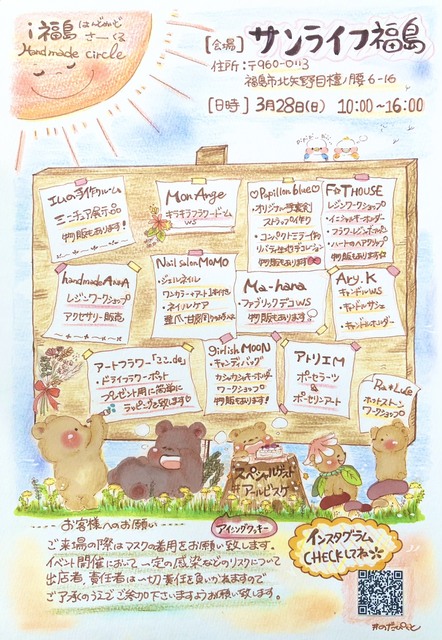 i 福島 はんどめいど
さーくる
Handmade circle
[会場] サンライフ福島
住所：〒960-0113
福島市北矢野目檀ノ腰6-16
[日時] 3月28日(日) 10:00~16:00
エムの手作りルーム
ミニチュア展示品
物販もあります!
Mon Ange
キラキラフラワードーム
WS
♡Papillon blue♡
・オリジナル
ストラップ作り
・コンパクトミラー
物販もあります
F☆T HOUSE
レジンワークショップ
・イニシャルキーホルダー
・フラワーレジンホルダー
・ハートのヘアクリップ
物販もあります
handmade AnnA
レジンワークショップ
アクセサリー販売
Nail salon MOMO
・ジェルネイル
ワンカラー+アート1本付き
・ネイルケア
Ma-hana
ファブリックデコWS
物販もあります
Ary.K
キャンドルWS
・キャンドルサシェ
・キャンドルホルダー
アートフラワー「ここ.de」
・ドライフラワーポット
プレゼント用に簡単に
ラッピングも致します
girlish MOON
・キャンディバッグ
ワークショップ
物販もあります!
アトリエM
ポーセラーツ
&
ポーセリンアート
Re*Live
ホットストーン
ワークショップ
スペシャルゲスト
アールビスケ
アイシングクッキー
お客様へのお願い
ご来場の際はマスクの着用をお願い致します。
イベント開催において、一定の感染などのリスクについて
出店者、責任者は一切責任を負いかねますので
ご了承のうえでご参加下さいますようお願い致します。
インスタグラム
CHECKしてね☆